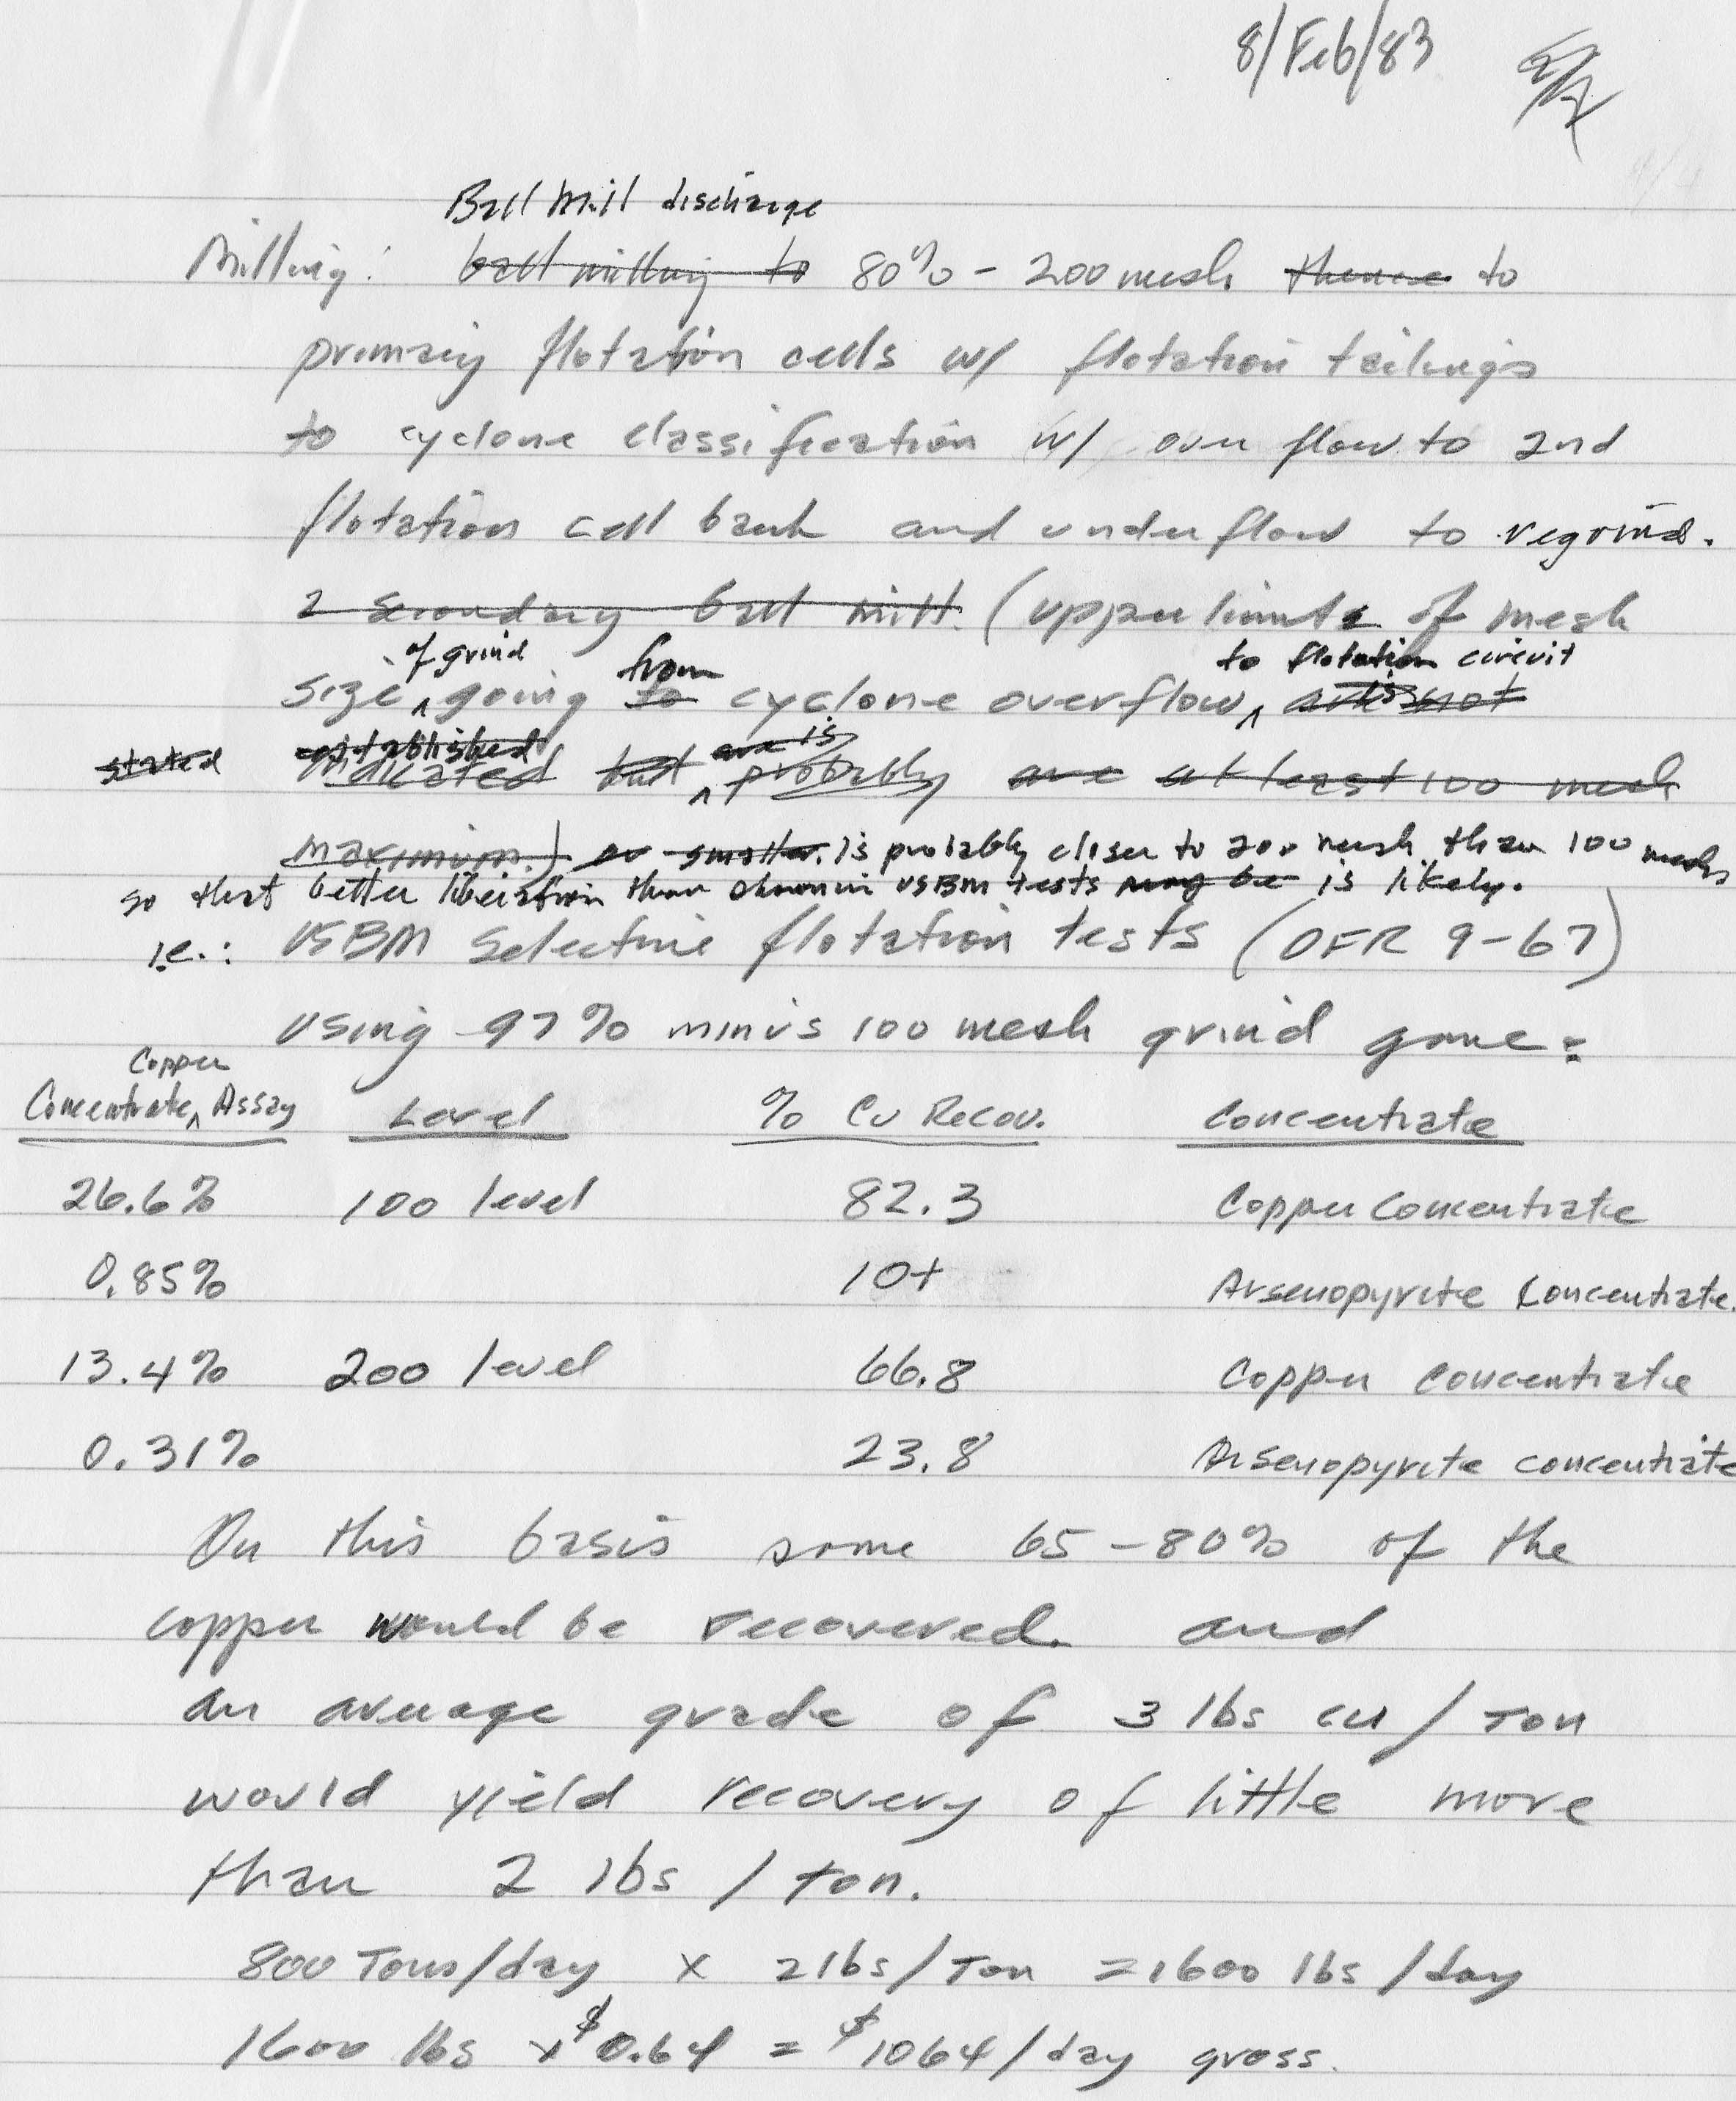 8/Feb/83
Ball Mill discharge
Milling: ball milling to 80% - 200 mesh thence to
primary flotation cells w/ flotation tailings
to cyclone classification w/ over flow to 2nd
flotation cell bank and underflow to regrind.
2 secondary ball mill. (upper limits of mesh
of grind from to flotation circuit
size ^ going to cyclone overflow ^ is not
established are is
stated indicated but ^ probably are at least 100 mesh
maximum) or smaller. is probably closer to 200 mesh than 100 mesh
so that better liberation than shown in USBM tests may be is likely.
i.e.: USBM Selective flotation tests (OFR 9-67)
using 97% minus 100 mesh grind gave:
Copper
Concentrate ^ Assay Level % Cu Recov. Concentrate
26.6% 100 level 82.3 Copper Concentrate
0.85% 10+ Arsenopyrite Concentrate.
13.4% 200 level 66.8 Copper Concentrate
0.31% 23.8 Arsenopyrite concentrate
On this basis some 65-80% of the
copper would be recovered. and
an average grade of 3 lbs cu / Ton
would yield recovery of little more
than 2 lbs / ton.
800 Tons/day x 2 lbs / Ton = 1600 lbs / day
1600 lbs x $0.64 = $1064/day gross.